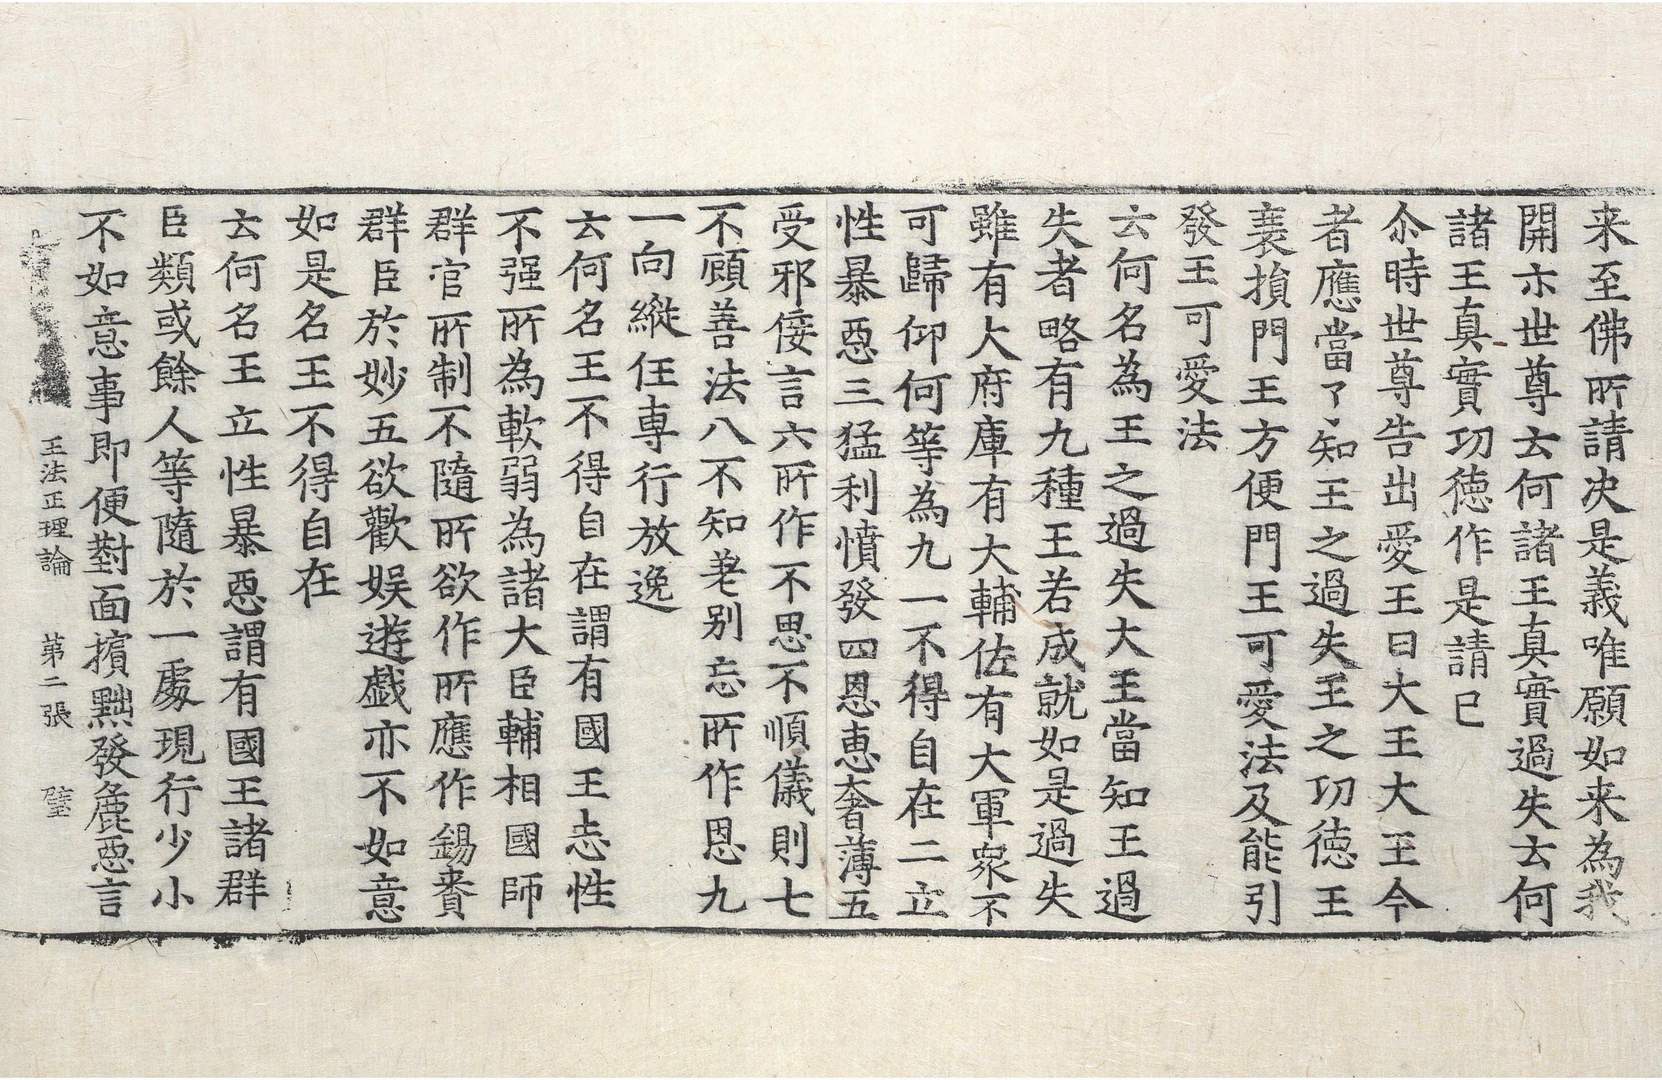 来至佛所請决是義唯願如来為我
開示世尊云何諸王真實過失云何
諸王真實功德作是請已
尒時世尊告出愛王曰大王大王今
者應當了知王之過失王之功德王
衰損門王方便門王可愛法及能引
發王可愛法
云何名為王之過失大王當知王過
失者略有九種王若成就如是過失
雖有大府庫有大輔佐有大軍衆不
可歸仰何等為九一不得自在二立
性暴惡三猛利憤發四恩惠奢薄五
受邪佞言六所作不思不順儀則七
不顧善法八不知差别忘所作恩九
一向縱任専行放逸
云何名王不得自在謂有國王志性
不强所為軟弱為諸大臣輔相國師
群官所制不隨所欲作所應作錫賚
群臣於妙五欲歡娱遊戲亦不如意
如是名王不得自在
云何名王立性暴惡謂有國王諸群
臣類或餘人等隨於一處現行少小
不如意事即便對面擯黜發麁惡言
王法正理論 第二張 璧